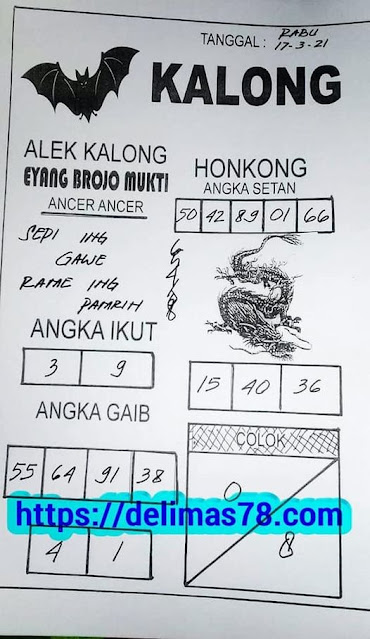 TANGGAL : RABU
17-3-21
KALONG
ALEK KALONG
EYANG BROJO MUKTI
ANCER ANCER
SEPI ING
GAWE
RAME ING
PAMRIH
HONKONG
ANGKA SETAN
50 42 89 01 66
ANGKA IKUT
3 9
15 40 36
ANGKA GAIB
55 64 91 38
4 1
COLOK
0
8
https://delimas78.com